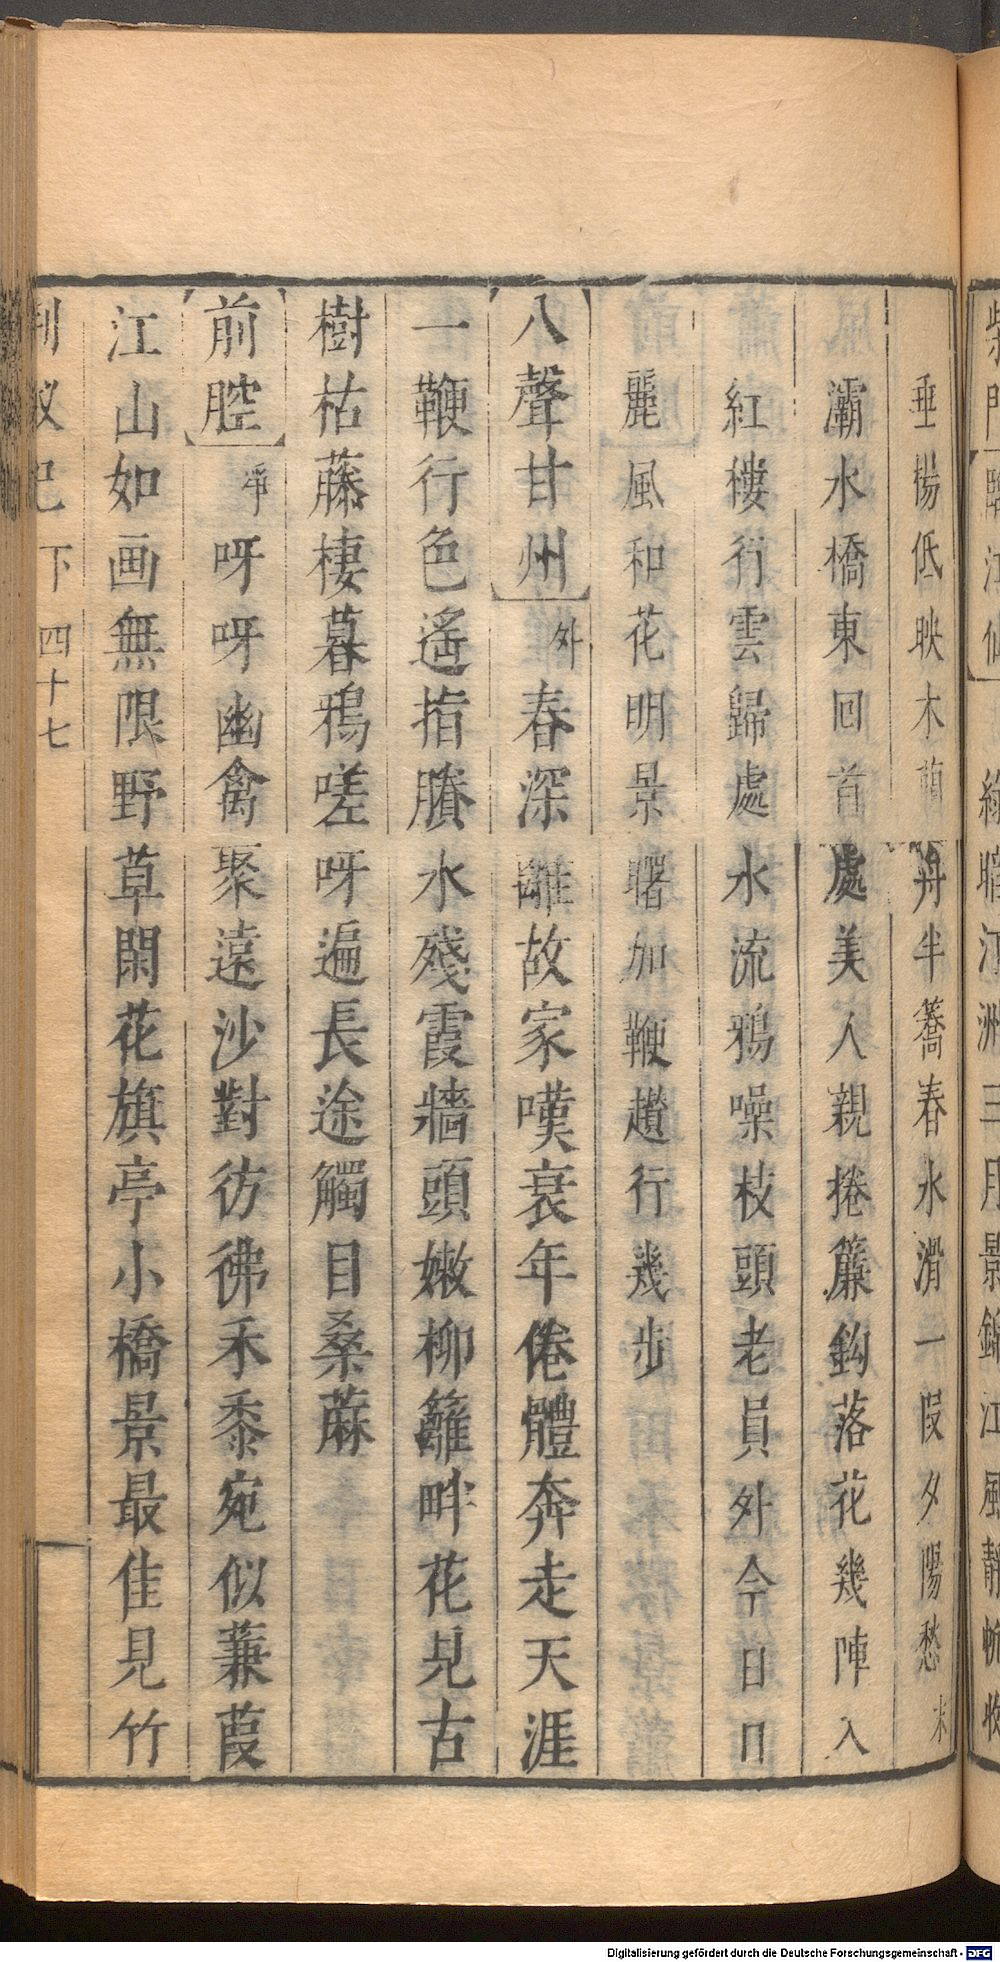 柴門臨江仙綠暗汀洲三月景錦江風靜帆收
垂楊低映木蘭舟半篙春水滑一段夕陽愁末
灞水橋東回首處美人親捲簾鈎落花幾陣入
紅樓行雲歸處水流鴉噪枝頭老員外今日日
麗風和花明景曙加鞭趲行幾步
八聲甘州外春深離故家嘆衰年倦體奔走天涯
一鞭行色遙指賸水殘霞牆頭嫩柳籬畔花見古
樹枯藤棲暮鴉嗟呀遍長途觸目桑蔴
前腔呀呀幽禽聚遠沙對彷彿禾黍宛似蒹葭
江山如画無限野草閑花旗亭小橋景最佳見竹
荆釵記下四十七
Digitalisierung gefördert durch die Deutsche Forschungsgemeinschaft - DFG